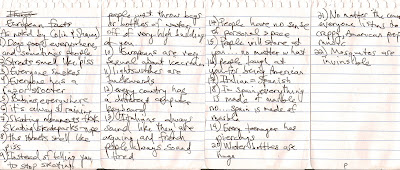 Things
European facts
As noted by Colin & Jimmy
1) Dogs poop everywhere
and sometimes people
2) Streets smell like piss
3) Everyone smokes
4) Everyone has a
scooter
5) Eating everywhere
6) it's always raining
7) Skating
Skating skateparks
8) the streets smell like
piss
9) Instead of telling you
to stop skating
people just throw bags
or bottles of water
off of very high buildings
at you
10) Europeans are very
sexual about ice cream
11) lightswitches are
backwards
12) every country has
a different computer
keyboard
13) Italians always
sound like they are
arguing and french
people always sound
tired
14) People have no sense
of personal space
15) People will stare at
you no matter what
16) People laugh at
you for being American
17) Italian = Spanish
18) In Spain, everything
is made of marble
no... spain is made of
marble
19) Every teenager has
piercings
20) Water bottles are
huge
21) No matter the country
everyone listens to
crappy American pop
music
22) Mosquitos are
invincible